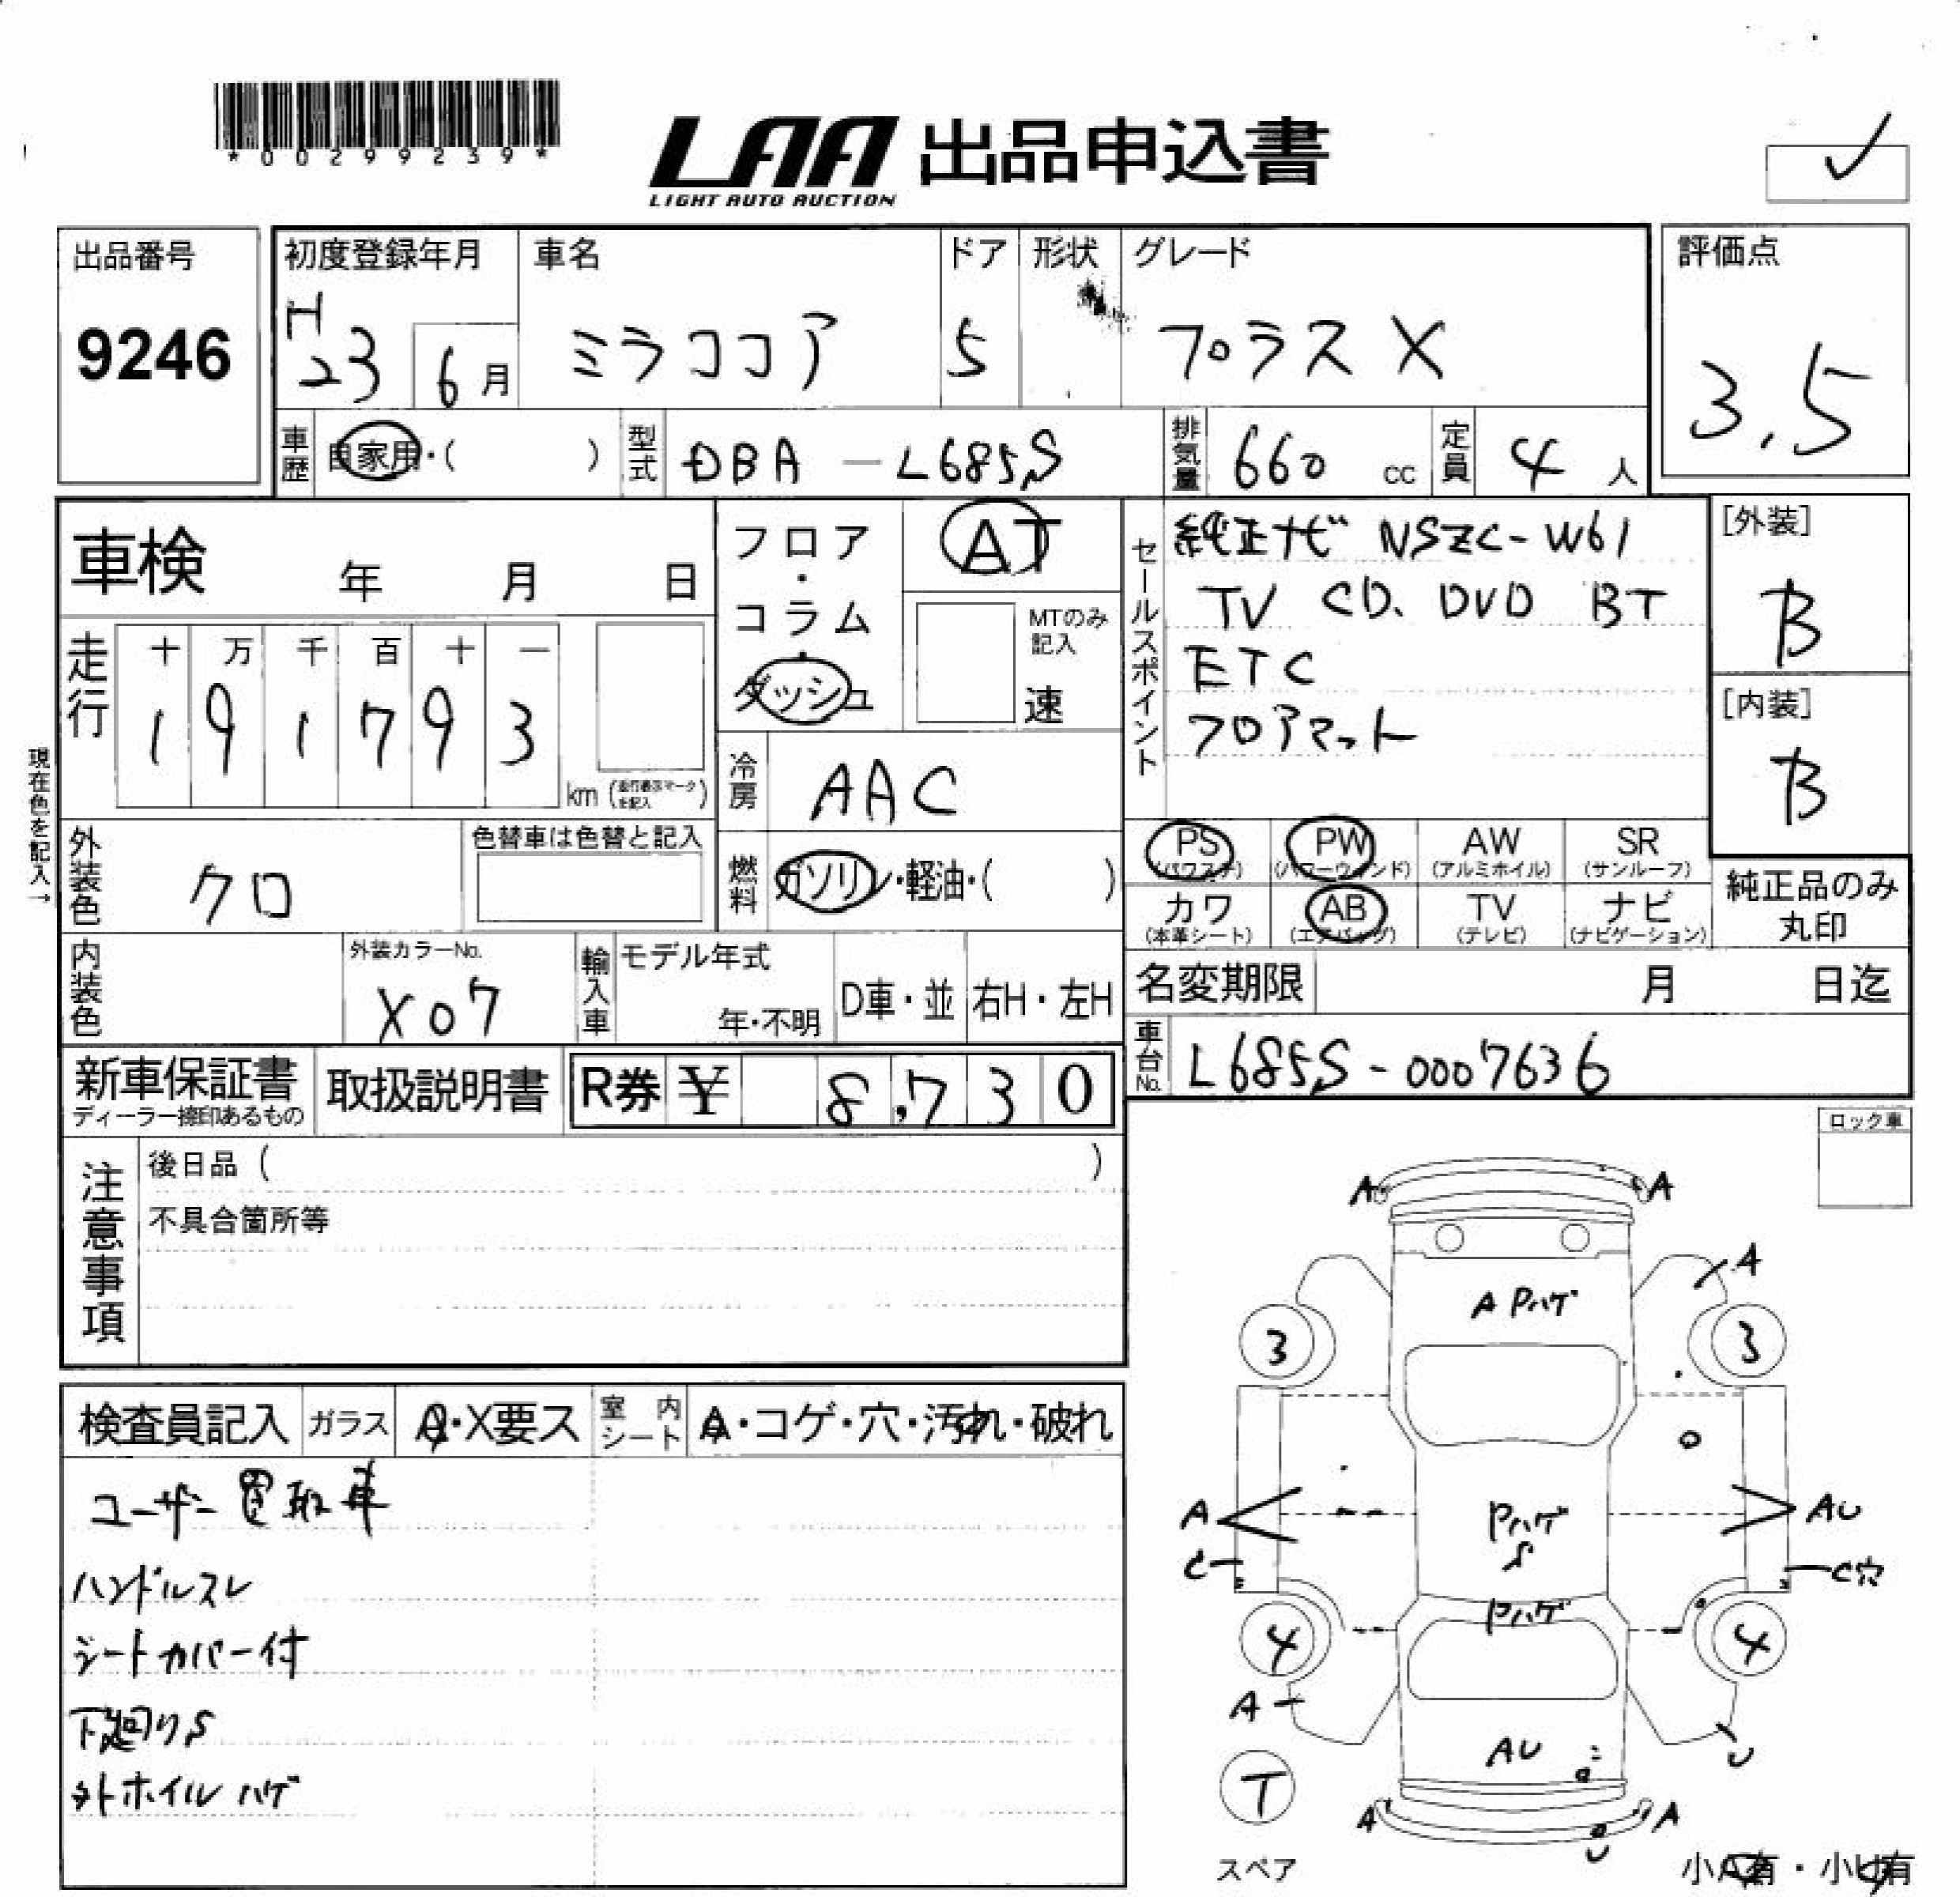 *00299239*
LAA 出品申込書
LIGHT AUTO AUCTION
出品番号
9246
初度登録年月
H23 6月
車名
ミラココア
ドア
5
形状
グレード
プラスX
評価点
3.5
車歴
自家用・( )
型式
DBA-L685S
排気量
660 cc
定員
4 人
車検 年 月 日
走行
十 万 千 百 十 一
1 9 1 7 9 3
km
現在色を記入→
フロア・コラム・ダッシュ
AT
MTのみ記入
速
冷房
AAC
燃料
ガソリン・軽油・( )
外装色
クロ
色替車は色替と記入
内装色
外装カラーNo.
X07
輸入車
モデル年式
年・不明
D車・並
右H・左H
セールスポイント
純正ナビ NSZC-W61
TV CD、DVD BT
ETC
フロアマット
[外装]
B
[内装]
B
PS
(パワステ)
PW
(パワーウィンド)
AW
(アルミホイル)
SR
(サンルーフ)
カワ
(本革シート)
AB
(エアバッグ)
TV
(テレビ)
ナビ
(ナビゲーション)
純正品のみ
丸印
名変期限 月 日迄
車台No.
L685S-0007636
新車保証書
ディーラー捺印あるもの
取扱説明書
R券 ¥ 8,730
注意事項
後日品 ( )
不具合箇所等
ロック車
検査員記入
ガラス
A・X要ス
室内シート
A・コゲ・穴・汚れ・破れ
ユーザー買取車
ハンドルスレ
シートカバー付
下廻りS
外ホイルハゲ
A A
A
A Pハゲ
3 3
A Pハゲ AU
S
C C穴
Pハゲ
4 4
A
AU U
T
A A
U
スペア
小A有・小U有